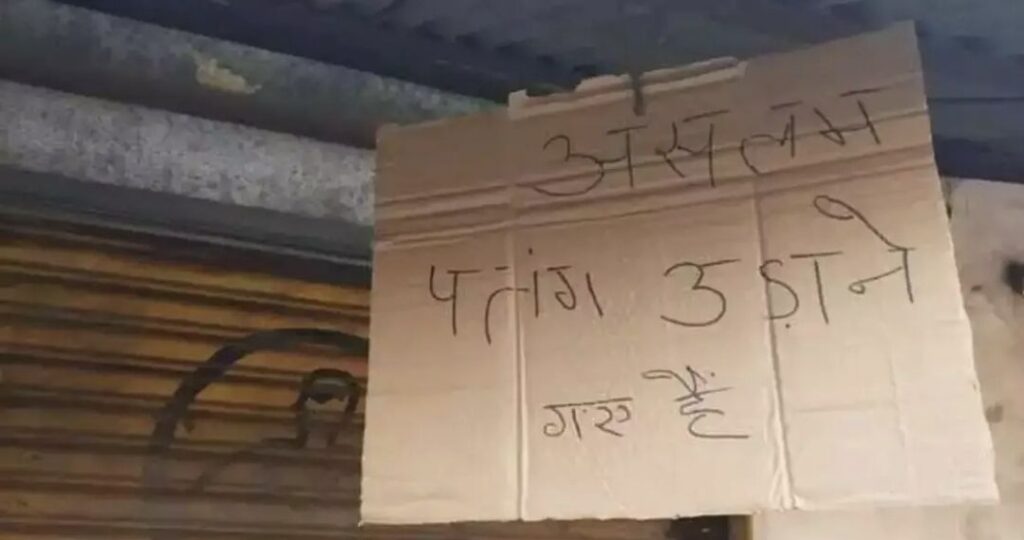 असलम
पतंग उड़ाने
गए हैं